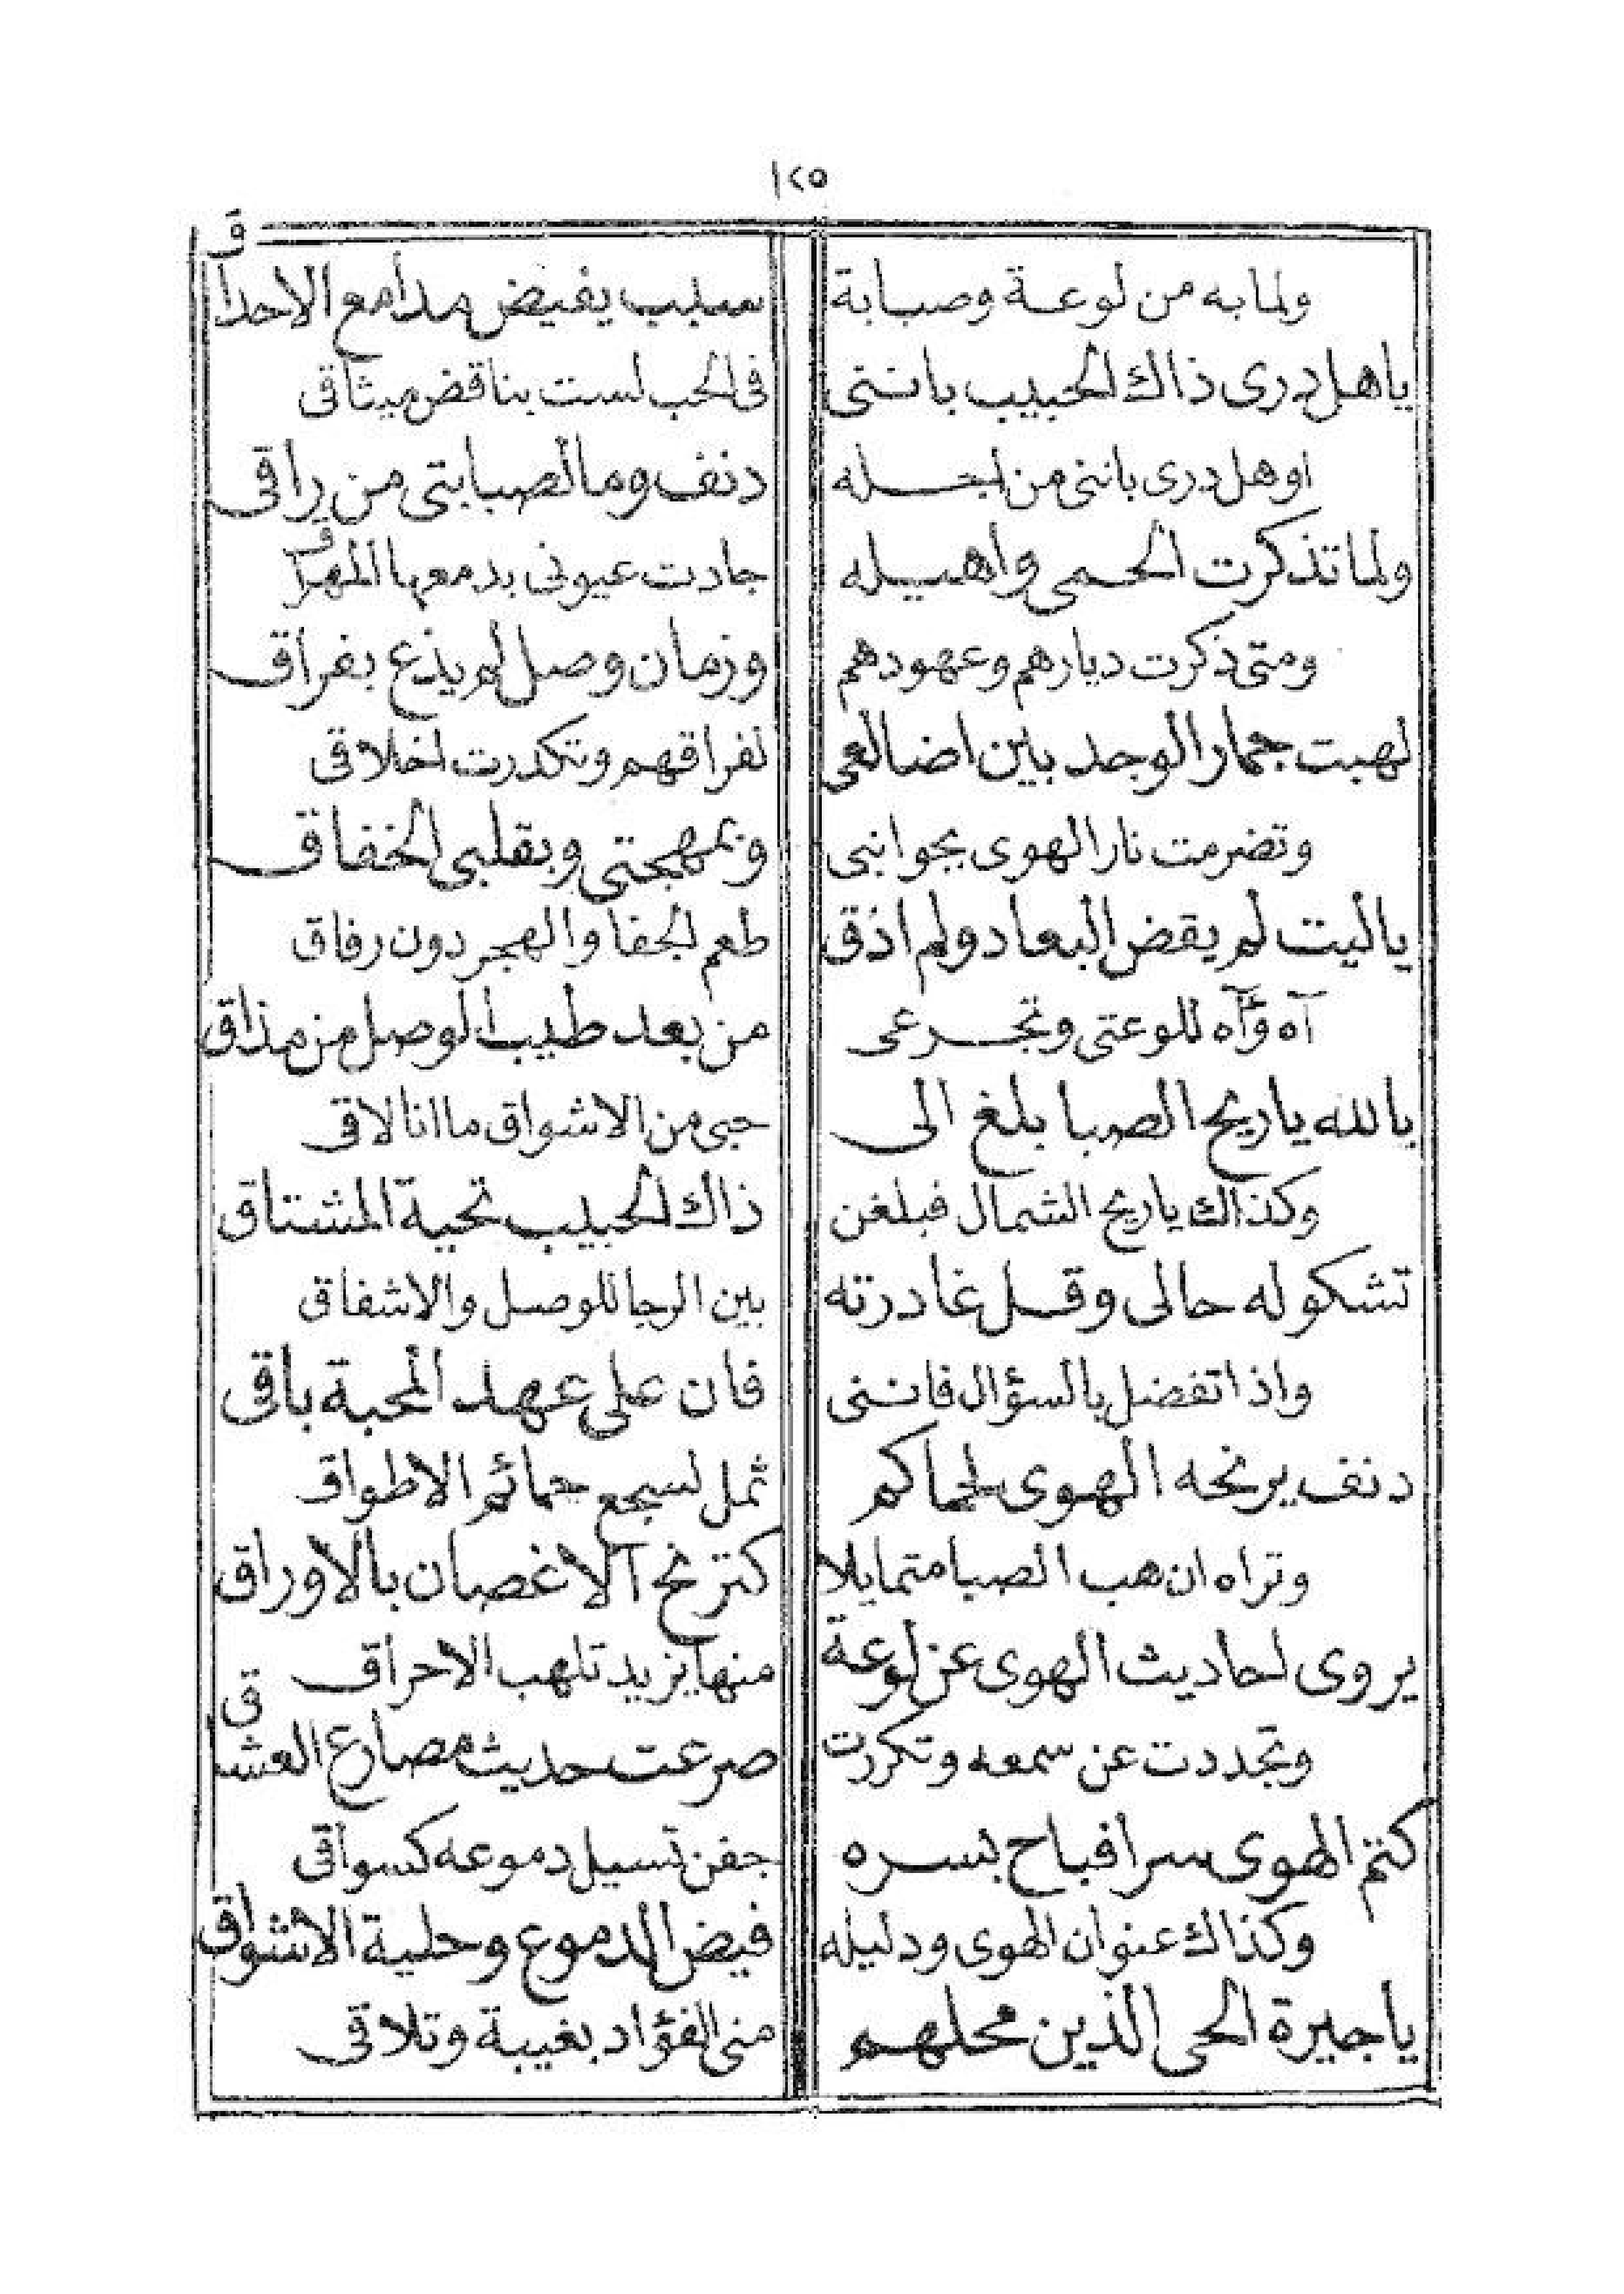 ١٢٥
ولما به من لوعة وصبابة سبب يفيض مدامع الاحداق
ياهل درى ذاك الحبيب باننى فى الحب لست بناقض ميثاقى
او هل درى باننى من اجله دنف وما لصبابتى من راقى
ولما تذكرت الحمى واهيله جادت عيونى بدمعها المهراق
ومتى ذكرت ديارهم وعهودهم وزمان وصل لم يذع بفراق
لهبت جمار الوجد بين اضالعى لفراقهم وتكدرت اخلاقى
وتضرمت نار الهوى بجوانبى وبمهجتى وبقلبى الخفاق
ياليت لم يقض البعاد ولم اذق طعم الجفا والهجر دون رفاق
آه وآه للوعتى وتجرعى من بعد طيب الوصل من مذاق
بالله ياريح الصبا بلغ الى حبى من الاشواق ما انا لاقى
وكذاك ياريح الشمال فبلغن ذاك الحبيب تحية المشتاق
تشكو له حالى وقل غادرته بين الرجا للوصل والاشفاق
واذا تفضل بالسؤال فاننى فان على عهد المحبة باقى
دنف يرنحه الهوى لحماكم ثمل لسجع حمائم الاطواق
وتراه ان هب الصبا متمايلا كترنح الاغصان بالاوراق
يروى احاديث الهوى عن لوعة منها يزيد تلهب الاحراق
وتجددت عن سمعه وتكررت صرعت حديث مصارع العشاق
كتم الهوى سرا فباح بسره جفن تسيل دموعه كسواقى
وكذاك عنوان الهوى ودليله فيض الدموع وحلية الاشواق
ياجيرة الحى الذين محلهم منى الفؤاد بغيبة وتلاقى